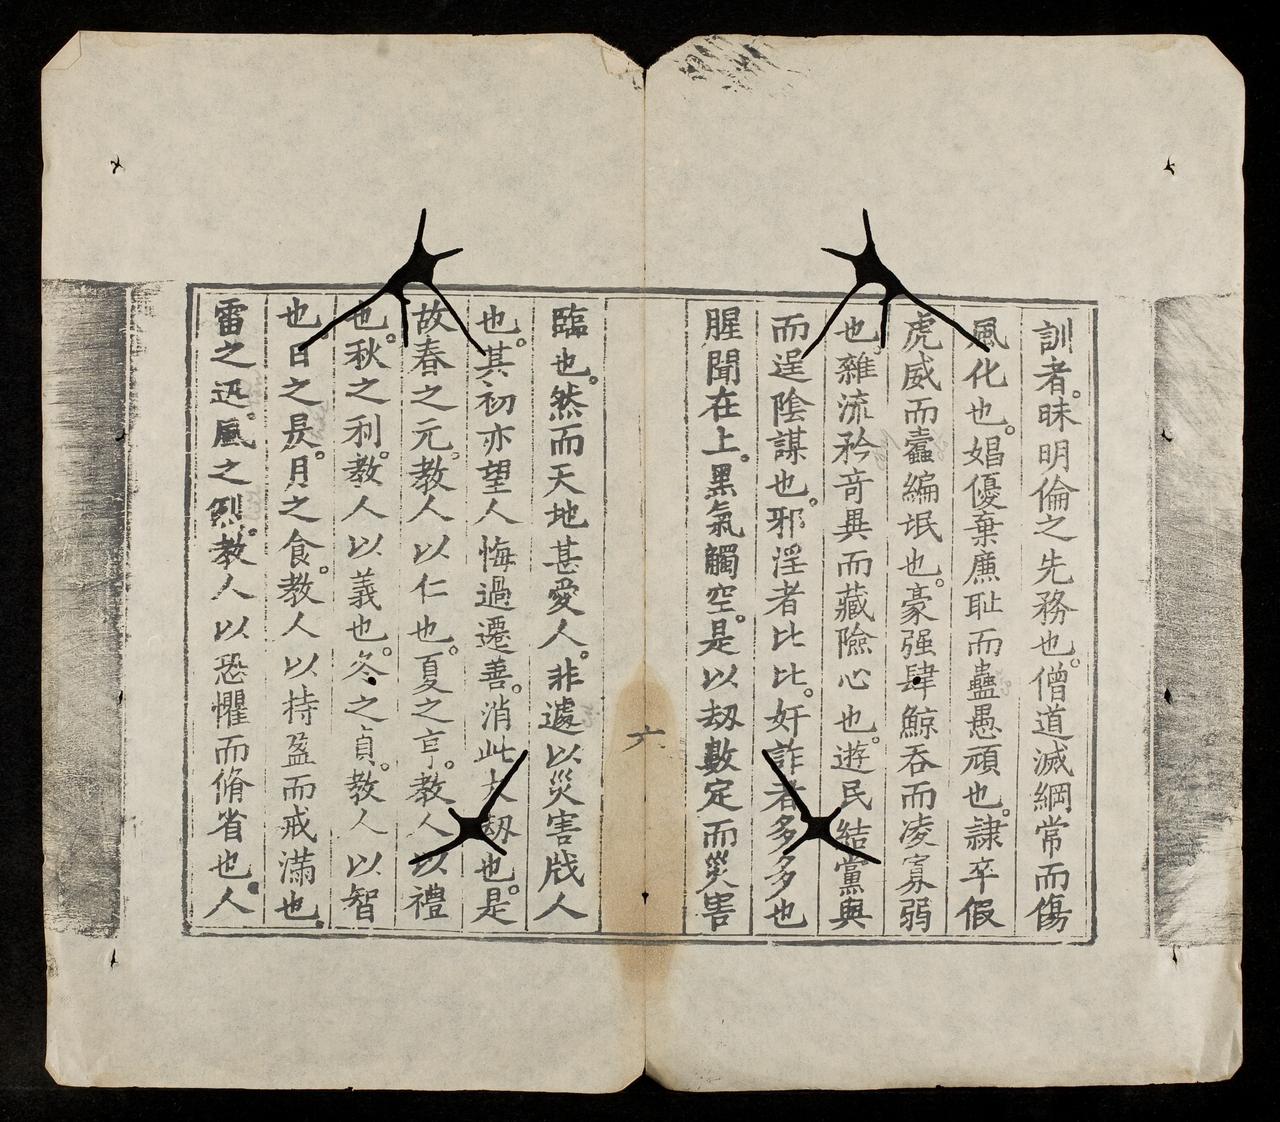 訓者。昧明倫之先務也。僧道滅綱常而傷
風化也。娼優棄廉耻而蠱愚頑也。隷卒假
虎威而蠹編氓也。豪强肆鯨吞而凌寡弱
也。雜流矜奇異而藏險心也。遊民結黨與
而逞陰謀也。邪淫者比比。奸詐者多多也
腥聞在上。黑氣觸空。是以刼數定而災害
六
臨也。然而天地甚愛人。非遽以災害戕人
也。其初亦望人悔過遷善。消此大刼也。是
故春之元。教人以仁也。夏之亨。教人以禮
也。秋之利。教人以義也。冬之貞。教人以智
也。日之昃。月之食。教人以持盈而戒滿也。
雷之迅。風之烈。教人以恐懼而脩省也。人